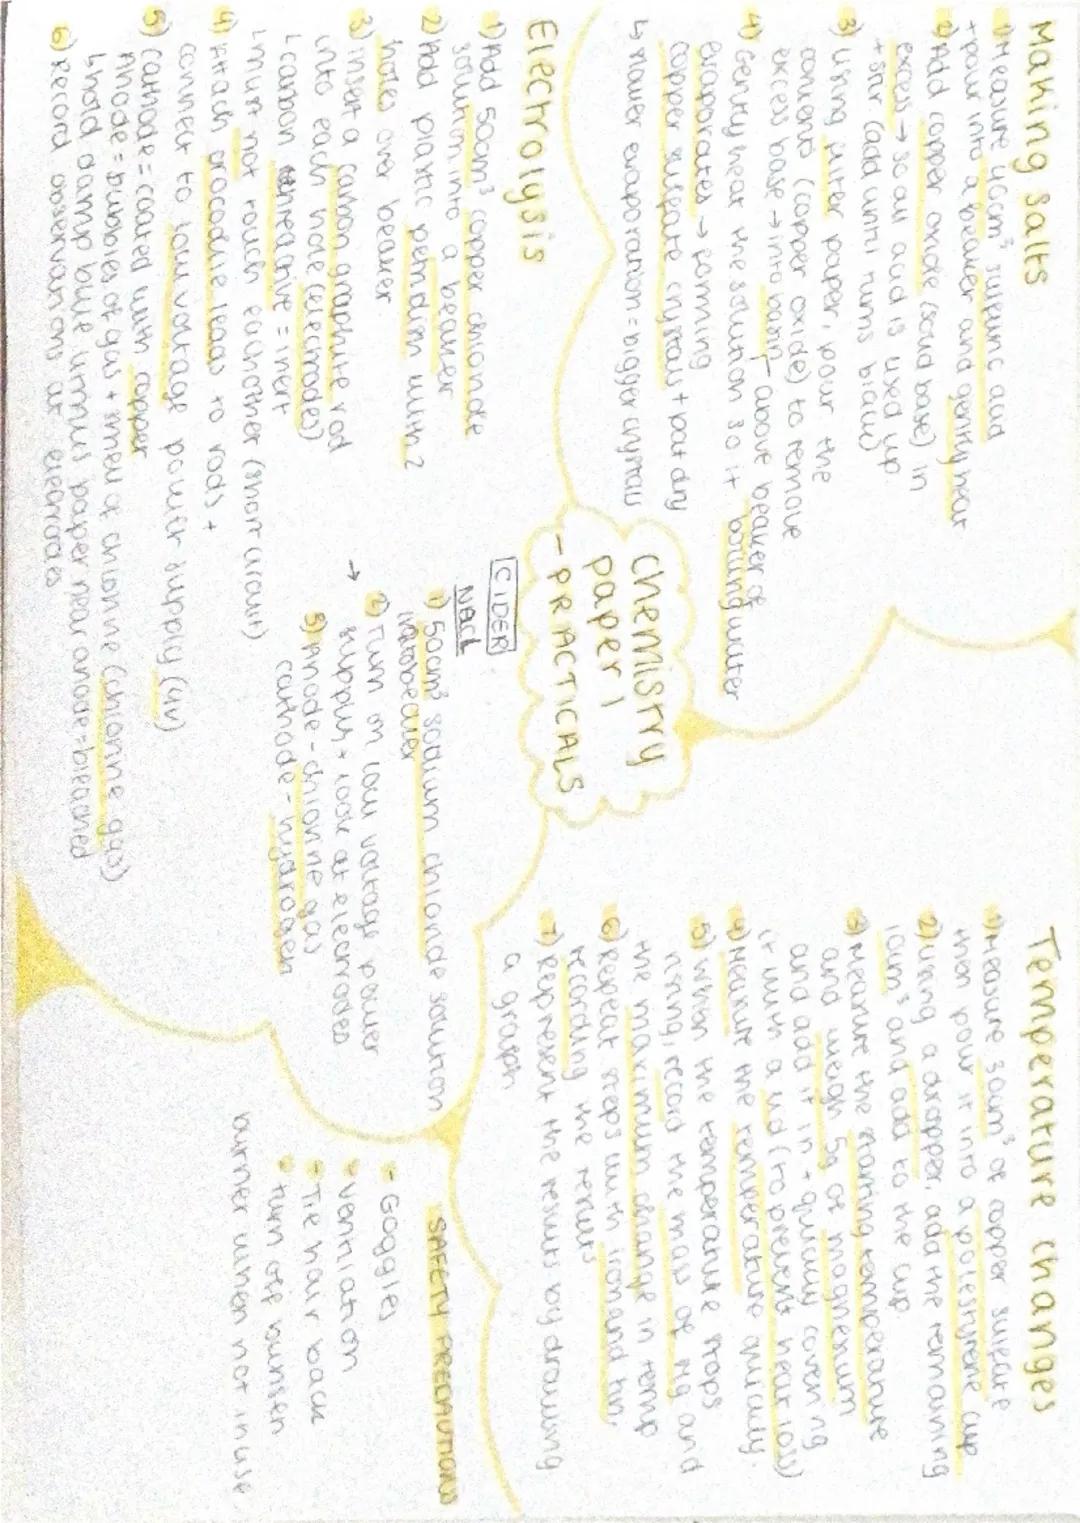 Making salts
1) Measure 40cm³ sulfuric acid
+ pour into a beaker and gently heat
2) Add copper oxide (solid base) in
excess → so all acid is used up
+ stir (add until turns black)
3) using filter paper, pour the
contents (copper oxide) to remove
excess base → into basin
4) Gently heat the solution so it
above beaker of boiling water
evaporates → forming
copper sulfate crystals + pat dry
↳ slower evaporation = bigger crystals
Electrolysis
1) Add 50cm³ copper chloride
solution into a beaker
2) Add plastic petri dish with 2
holes over beaker
3) insert a carbon graphite rod
into each hole (electrodes)
↳ carbon unreactive = inert
↳ must not touch eachother (short circuit)
4) Attach crocodile leads to rods +
connect to low voltage power supply (4v)
5) Cathode = coated with copper
Anode = bubbles of gas + smell of chlorine (chlorine gas)
↳ hold damp blue litmus paper near anode = bleached
6) Record observations at electrodes
Chemistry
paper 1
- PRACTICALS
CIDER
NaCl
1) 50cm³ sodium chloride solution
into beaker
→ 2) Turn on low voltage power
supply + look at electrodes
3) Anode - chlorine gas
cathode - hydrogen
Temperature changes
1) Measure 30cm³ of copper sulfate
then pour it into a polestyrene cup
2) using a dropper, add the remaining
and add to the cup
3) Measure the starting temperature
and weigh 5g of magnesium
and add it in + quickly covering
it with a lid (to prevent heat loss)
4) Measure the temperature quickly.
5) When the temperature stops
rising, record the mass of Mg and
the maximum change in temp
6) Repeat steps with iron and tin,
recording the results
7) Represent the results by drawing
a graph
SAFETY PRECAUTIONS
- Goggles
- ventilation
- Tie hair back
- turn off bunsen
burner when not in use